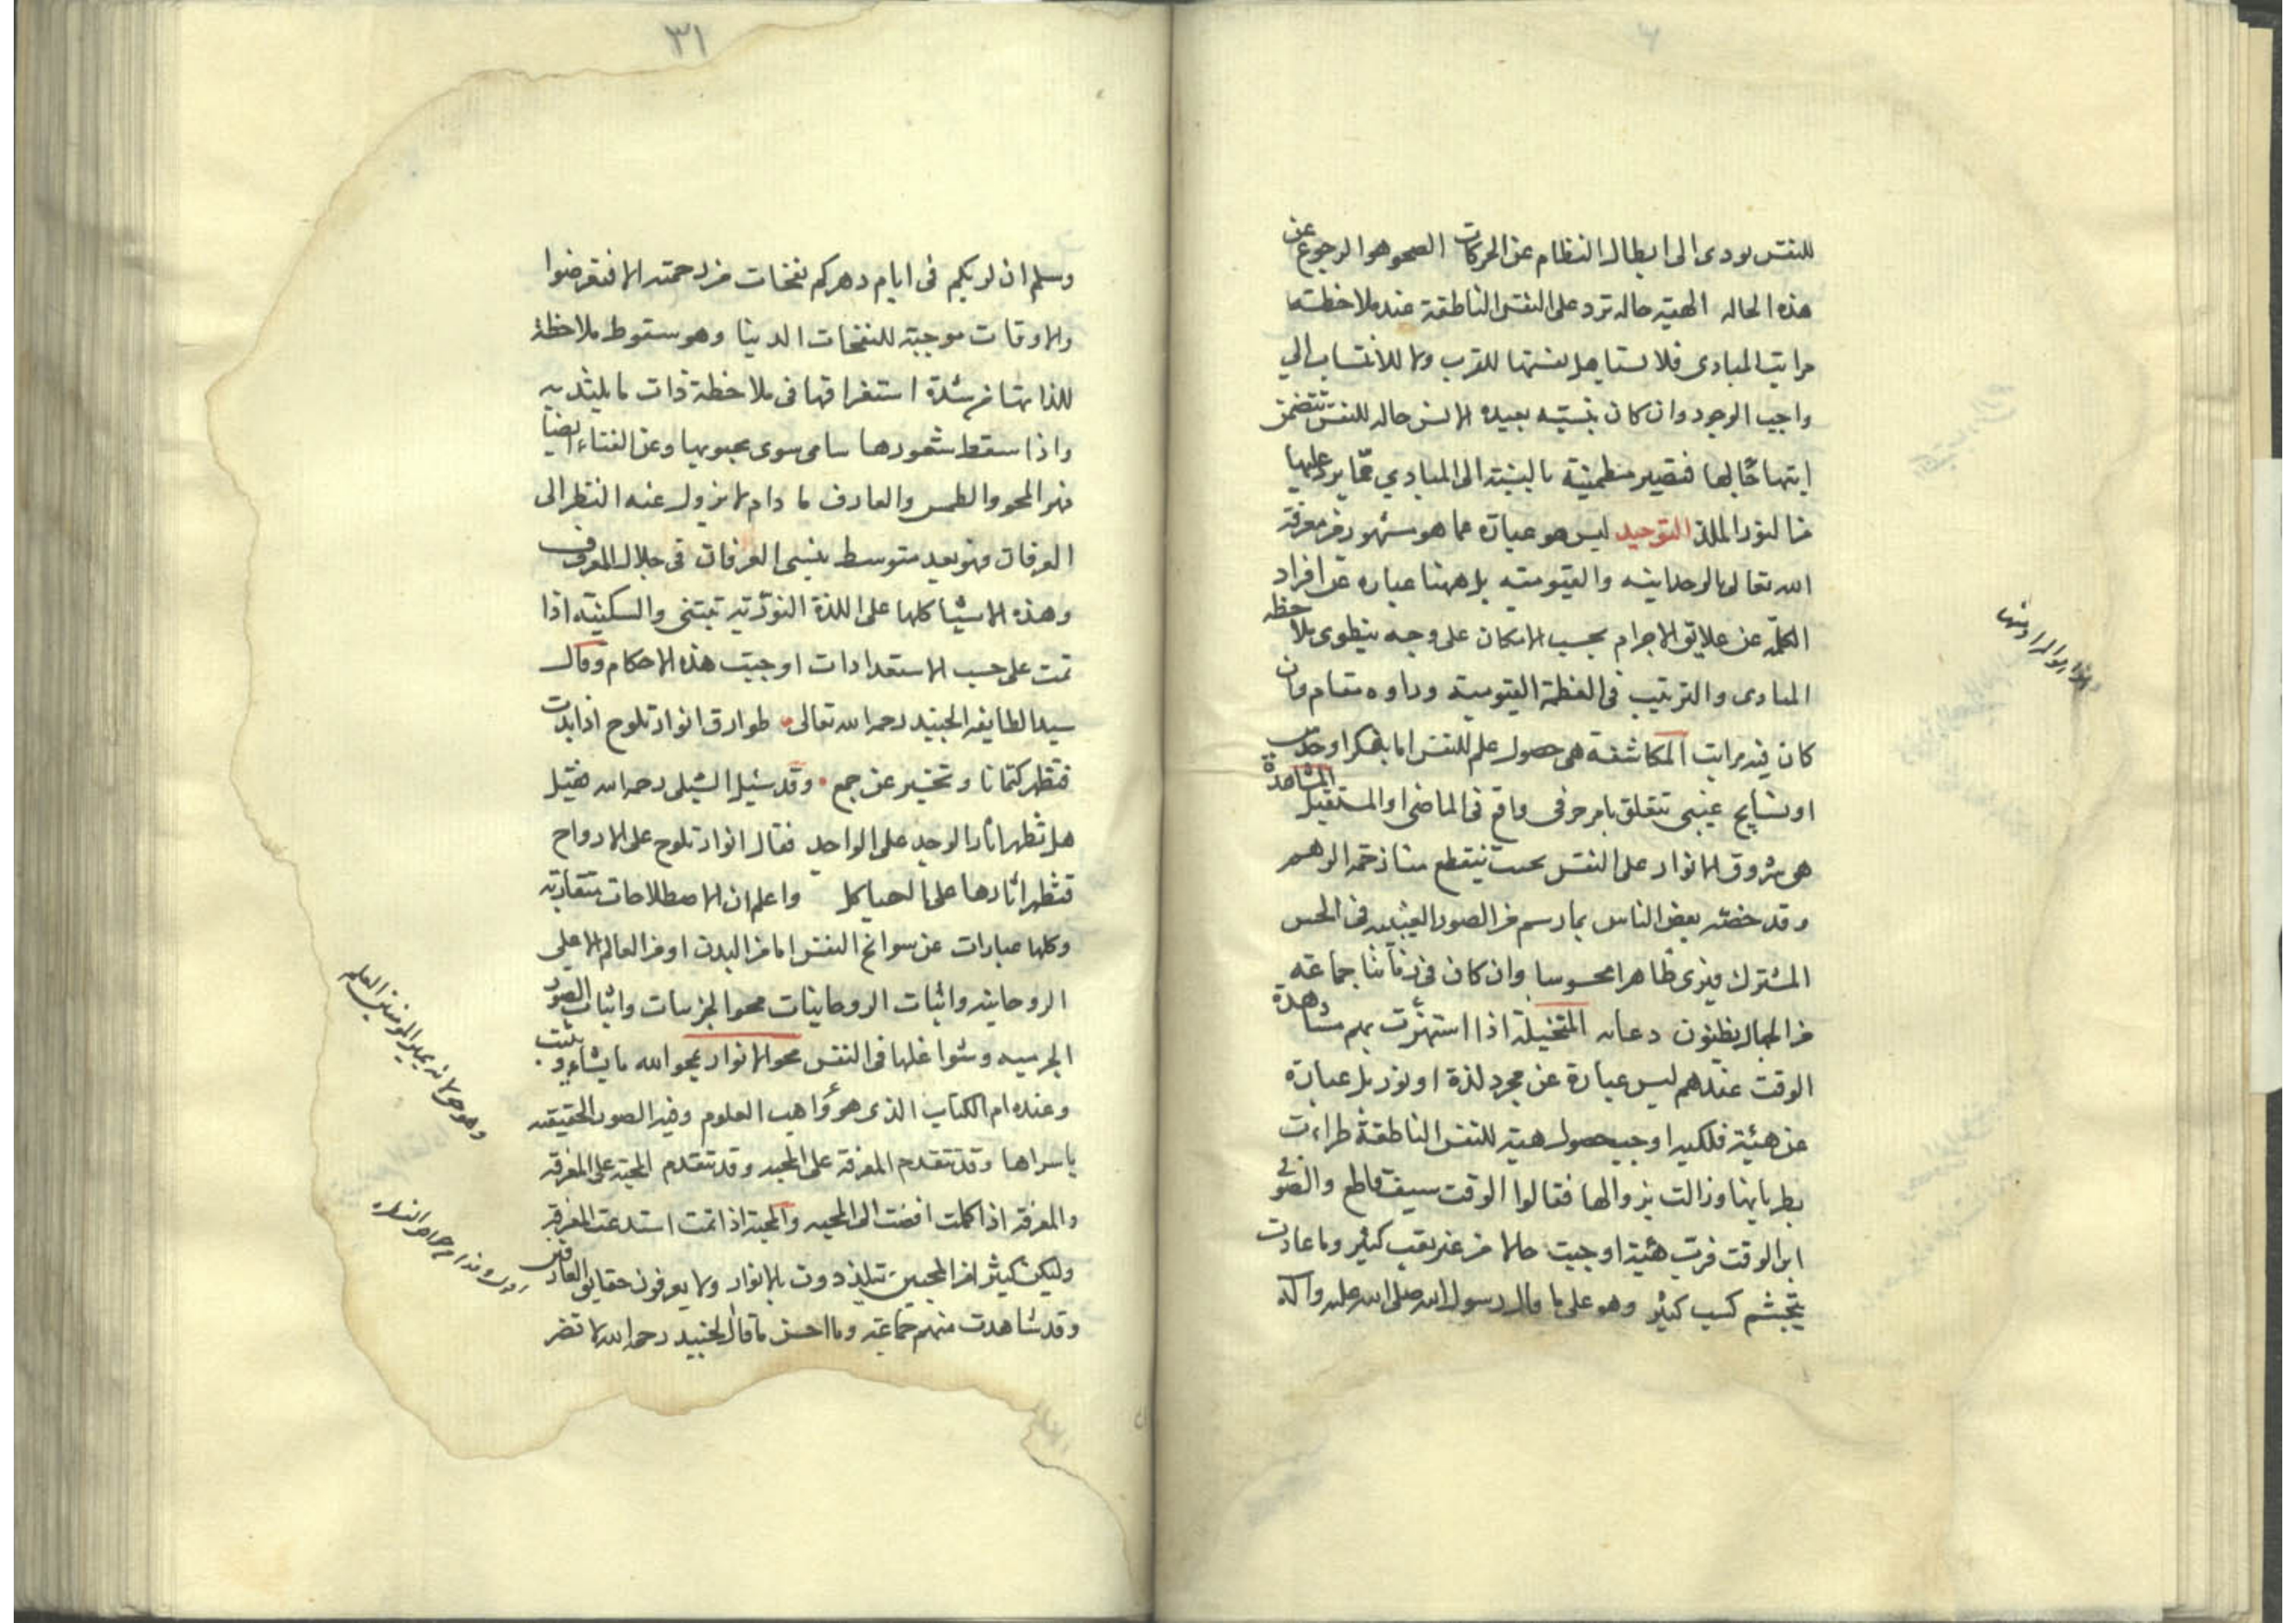 للنفس يودى الى ابطال النظام عن الحركات الصحو هو الرجوع عن
هذه الحاله الهيبة حاله ترد على النفس الناطقة عند ملاحظتها
مراتب المبادى فلا تستاهل نفسها للقرب ولا للانتساب الي
واجب الوجود وان كان بنسبته بعيده الانس حاله للنفس تتضمن
ابتهاجا لها فتصير مطمئنة بالنسبة الى المبادي مما يرد عليها
من النور الملذ التوحيد ليس هو عبارة عما هو مشهور من معرفة
الله تعالى بالوحدانيه والقيوميه بل ههنا عباره عن افراد
الكلمة عن علايق الاجرام بحسب الامكان على وجه ينطوى ملاحظه
المبادى والترتيب فى العظمة القيومية وراوه مقام وان
كان فيه مراتب المكاشفة هى حصول علم للنفس اما بفكر او حدس
او نسايح غيبى تتعلق بامر جزفى واقع فى الماضى او المستقبل المشاهدة
هى شروق الانوار على النفس بحيث ينقطع منازعة الوهم
وقد خصه بعض الناس بما رسم من الصور الغيبيه فى الحس
المشترك فيرى ظاهرا محسوسا وان كان فى زماننا جماعة
من الجهال يظنون دعابه المتخيلة اذا استهزت بهم مشاهدة
الوقت عندهم ليس عبارة عن مجرد لذة او نور بل عبارة
عن هيئة فلكيه اوجبت حصول هيئة للنفس الناطقة طراءت
بطريانها وزالت بزوالها فقالوا الوقت سيف قاطع والصوفى
ابن الوقت فرب هيئة اوجبت حالا من غير تعب كثير وما عادت
بتجشم كسب كثير وهو على ما قال رسول الله صلى الله عليه وآله
٣١
وسلم ان لربكم فى ايام دهركم نفحات من رحمته الا فتعرضوا
والاوقات موجبة للنفحات الدنيا وهو سقوط ملاحظة
للذاتها من شدة استغراقها فى ملاحظة ذات ما يلتذ به
واذا سقط شعورها سامى سوى محبوبها وعن الفناء ايضا
فهو المحو والطمس والعارف ما دام لا يزول عنه النظر الى
العرفان فهو بعيد متوسط ينسى العرفان فى جلال المعروف
وهذه الاشيا كلها على اللذة النورية تبتنى والسكينة اذا
تمت على حسب الاستعدادات اوجبت هذه الاحكام وقال
سيد الطايفه الجنيد رحمه الله تعالى طوارق انوار تلوح اذا بدت
فتظهر كتمانا وتخبر عن جمع وقد سئيل الشبلى رحمه الله فقيل
هل تظهر اثار الوجد على الواجد فقال انوار تلوح على الارواح
فتظهر اثارها على الهياكل واعلم ان الاصطلاحات متقاربة
وكلها عبارات عن سوانح النفس اما من البدن او من العالم الاعلى
الروحانيه واثبات الروحانيات محو الجزييات واثبات الصور
الجرميه وشواغلها فى النفس محو الانوار يمحو الله ما يشاء ويثبت
وعنده ام الكتاب الذى هو واهب العلوم وفيه الصور الحقيقه
باسراها وقد تتقدم المعرفة على المحبه وقد تتقدم المحبة على المعرفة
والمعرفة اذا كملت افضت الى المحبه والمحبة اذا تمت استدعت المعرفة
وليكن كثيرا من المحبين يتلذذون بالانوار ولا يعرفون حقايق العارفين
وقد شاهدت منهم جماعة وما احسن ما قال الجنيد رحمه الله لا تضر